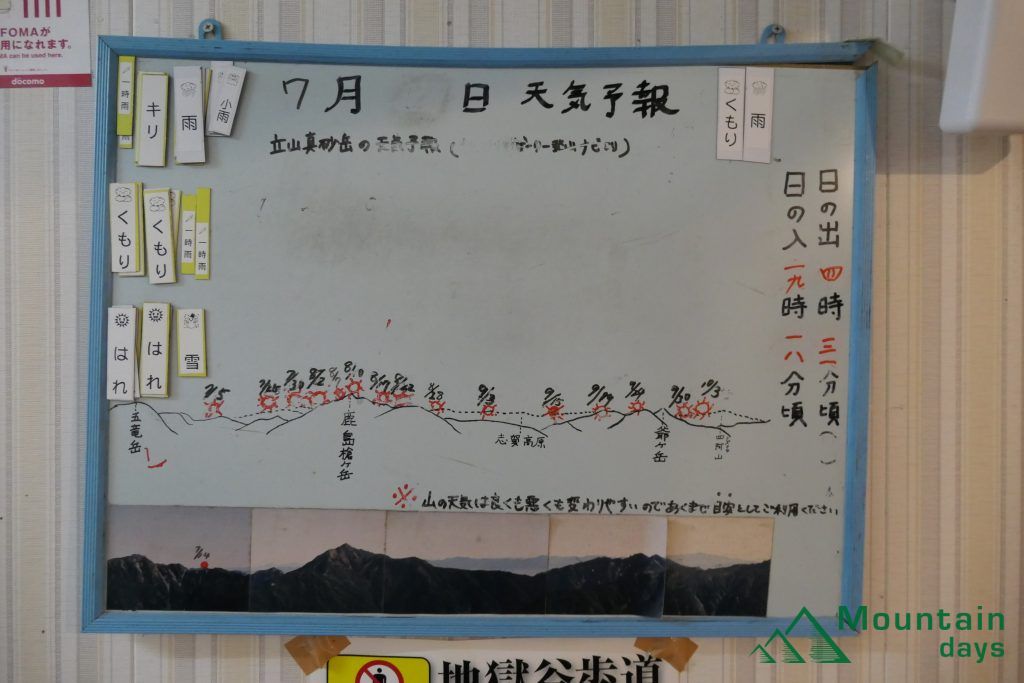 FOMAが
用になれます。
MA can be used here.
docomo
7月 日 天気予報
立山真砂岳の天気予報(
一時雨
キリ
雨
小雨
くもり
雨
くもり
くもり
一時雨
一時雨
はれ
はれ
雪
日の出 四時 三一分頃( )
日の入 一九時 一八分頃
7/5 7/25 7/30 8/2 8/10 8/17 8/22 9/3 9/13 9/19 9/30 10/3
五竜岳
鹿島槍ヶ岳
志賀高原
爺ヶ岳
四阿山
※ 山の天気は良くも悪くも変わりやすいのであくまで目安としてご利用ください
7/24
地獄谷歩道
Mountain
days